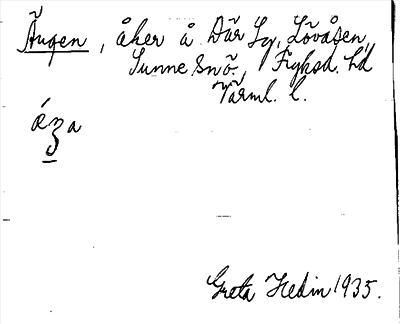 Äugen, åker å Där Lg, Lövåsen,
Sunne snö., Fryksd. hd
Värml. l.
áza
Greta Hedin 1935.